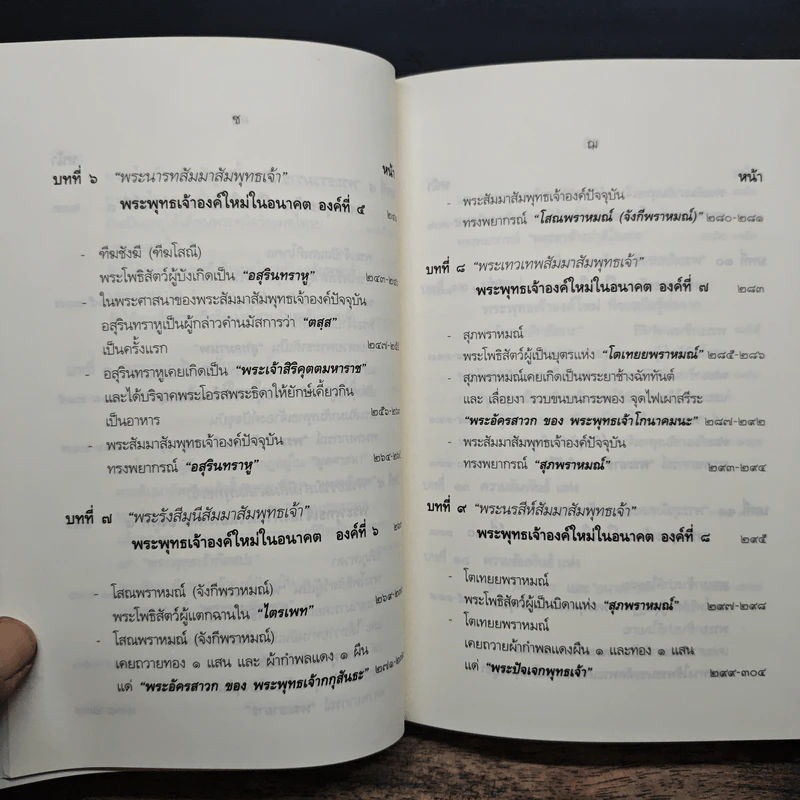 ช
หน้า
บทที่ ๖ “พระนารทสัมมาสัมพุทธเจ้า”
พระพุทธเจ้าองค์ใหม่ในอนาคต องค์ที่ ๕
- ฑีฆชังฆี (ฑีฆโสณี)
พระโพธิสัตว์ผู้บังเกิดเป็น “อสุรินทราหู”
- ในพระศาสนาของพระสัมมาสัมพุทธเจ้าองค์ปัจจุบัน
อสุรินทราหูเป็นผู้กล่าวคำนมัสการว่า “ตสฺส”
เป็นครั้งแรก
- อสุรินทราหูเคยเกิดเป็น “พระเจ้าสิริคุตตมหาราช”
และได้บริจาคพระโอรสพระธิดาให้ยักษ์เคี้ยวกิน
เป็นอาหาร
- พระสัมมาสัมพุทธเจ้าองค์ปัจจุบัน
ทรงพยากรณ์ “อสุรินทราหู”
บทที่ ๗ “พระรังสีมุนีสัมมาสัมพุทธเจ้า”
พระพุทธเจ้าองค์ใหม่ในอนาคต องค์ที่ ๖
- โสณพราหมณ์ (จังกีพราหมณ์)
พระโพธิสัตว์ผู้แตกฉานใน “ไตรเพท”
- โสณพราหมณ์ (จังกีพราหมณ์)
เคยถวายทอง ๑ แสน และ ผ้ากำพลแดง ๑ ผืน
แด่ “พระอัครสาวก ของ พระพุทธเจ้ากกุสันธะ”
ฌ
หน้า
- พระสัมมาสัมพุทธเจ้าองค์ปัจจุบัน
ทรงพยากรณ์ “โสณพราหมณ์ (จังกีพราหมณ์)” ๒๘๐-๒๘๑
บทที่ ๘ “พระเทวเทพสัมมาสัมพุทธเจ้า”
พระพุทธเจ้าองค์ใหม่ในอนาคต องค์ที่ ๗ ๒๘๓
- สุภพราหมณ์
พระโพธิสัตว์ผู้เป็นบุตรแห่ง “โตเทยยพราหมณ์” ๒๘๕-๒๘๖
- สุภพราหมณ์เคยเกิดเป็นพระยาช้างฉัททันต์
และ เลื่อยงา รวบขนบนกระพอง จุดไฟเผาสรีระ
“พระอัครสาวก ของ พระพุทธเจ้าโกนาคมนะ” ๒๘๗-๒๙๒
- พระสัมมาสัมพุทธเจ้าองค์ปัจจุบัน
ทรงพยากรณ์ “สุภพราหมณ์” ๒๙๓-๒๙๔
บทที่ ๙ “พระนรสีห์สัมมาสัมพุทธเจ้า”
พระพุทธเจ้าองค์ใหม่ในอนาคต องค์ที่ ๘ ๒๙๕
- โตเทยยพราหมณ์
พระโพธิสัตว์ผู้เป็นบิดาแห่ง “สุภพราหมณ์” ๒๙๗-๒๙๘
- โตเทยยพราหมณ์
เคยถวายผ้ากำพลแดงผืน ๑ และทอง ๑ แสน
แด่ “พระปัจเจกพุทธเจ้า” ๒๙๙-๓๐๔